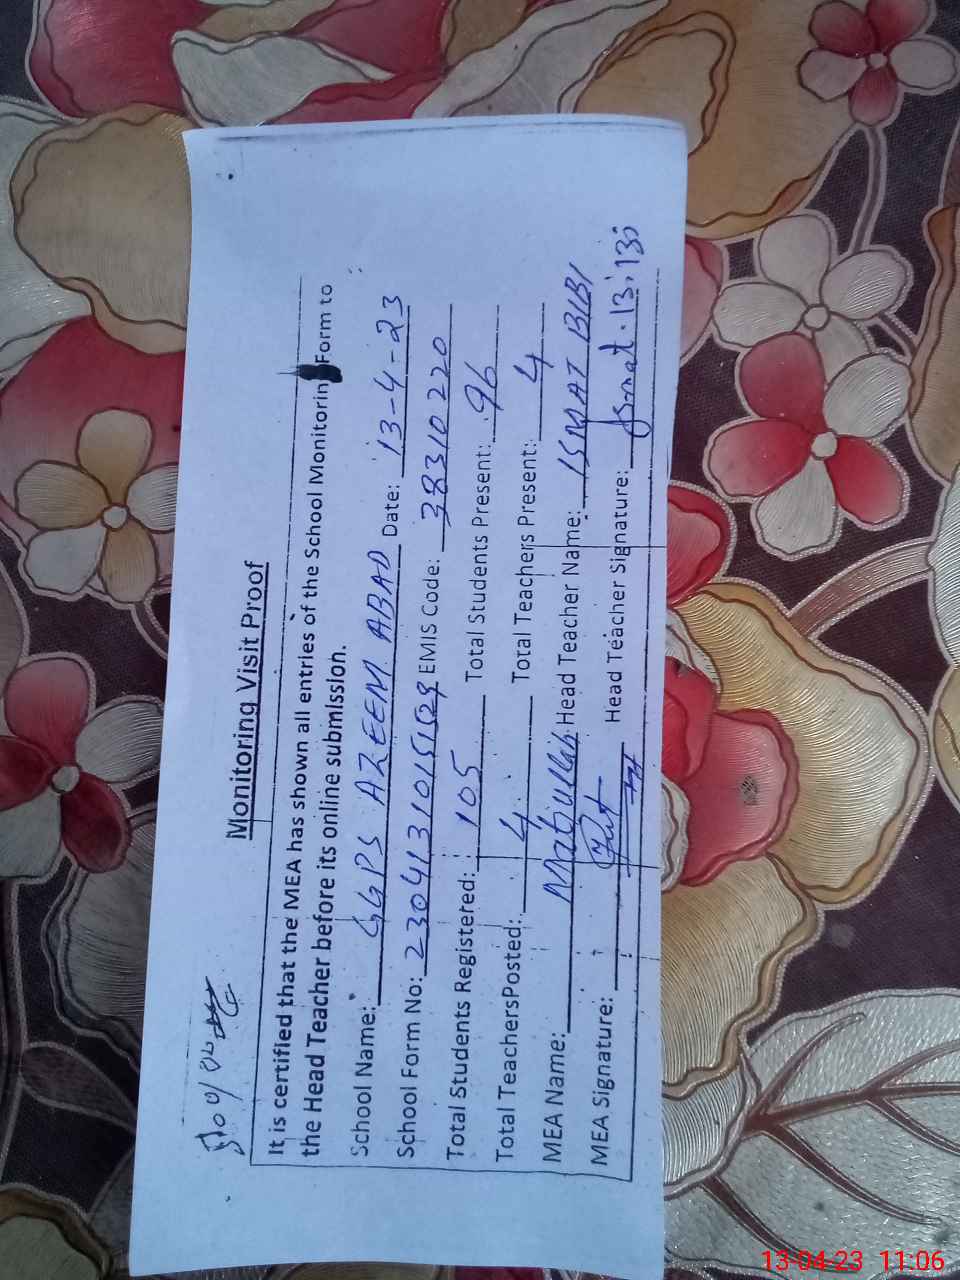 Monitoring Visit Proof
It is certified that the MEA has shown all entries of the School Monitorin Form to
the Head Teacher before its online submission.
School Name: GGPS AZEEM ABAD Date: 13-4-23
School Form No: EMIS Code: 38310220
Total Students Registered: 105 Total Students Present: 96
Total TeachersPosted: 4 Total Teachers Present: 4
MEA Name: Matiullah Head Teacher Name: ISMAT BIBI
MEA Signature: Head Teacher Signature: Ismat
13-04-23 11:06